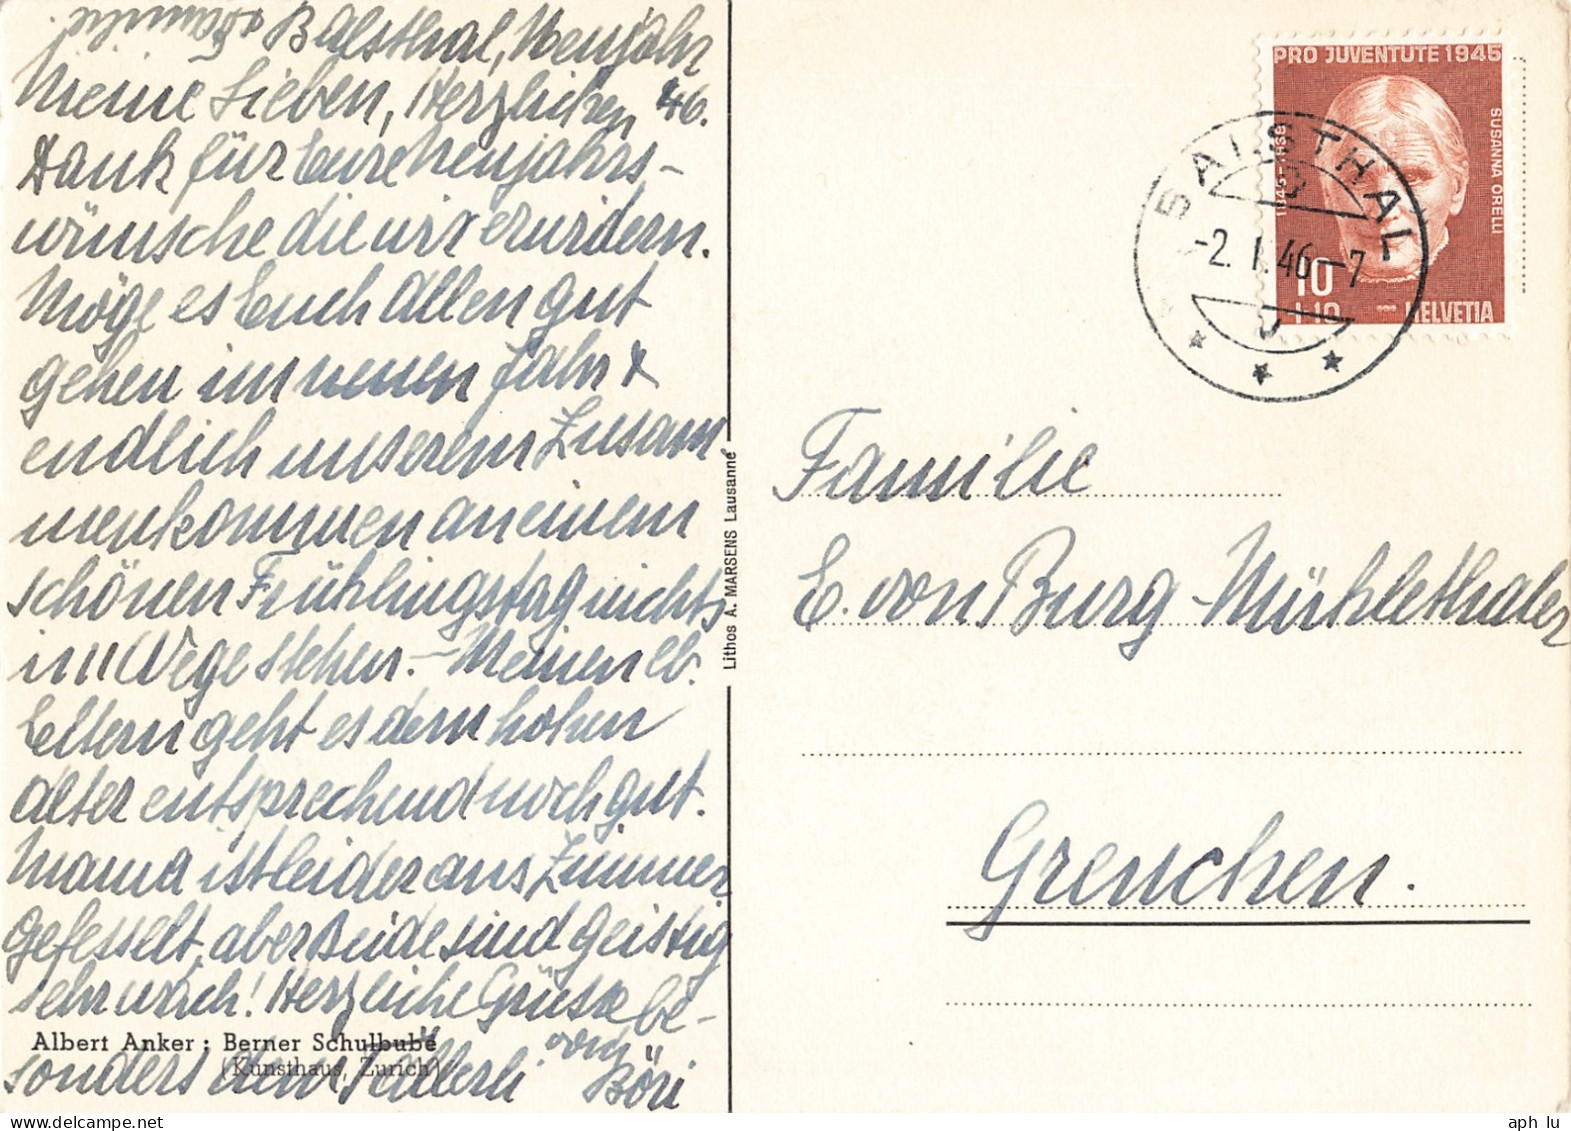 Balsthal, Neujahr
46.
Meine Lieben, Herzlichen
Dank für Eure Neujahrs-
wünsche die wir erwidern.
Möge es Euch Allen gut
gehen im neuen Jahr &
endlich unserem Zusam
menkommen an einem
schönen Frühlingstag nichts
im Wege stehen. – Meinen lb.
Eltern geht es dem hohen
Alter entsprechend noch gut.
Mama ist leider ans Zimmer
gefesselt, aber Beide sind geistig
sehr wach! Herzliche Grüsse be-
sonders dem von
Böri
& Familie
Albert Anker : Berner Schulbube
(Kunsthaus, Zurich)
Lithos A. MARSENS Lausanne
PRO JUVENTUTE 1945
SUSANNA ORELLI
1845-1939
10
+10
HELVETIA
BALSTHAL
-2. I. 46 - 7
Familie
E. von Burg - Mühlethaler
Grenchen.
aph lu